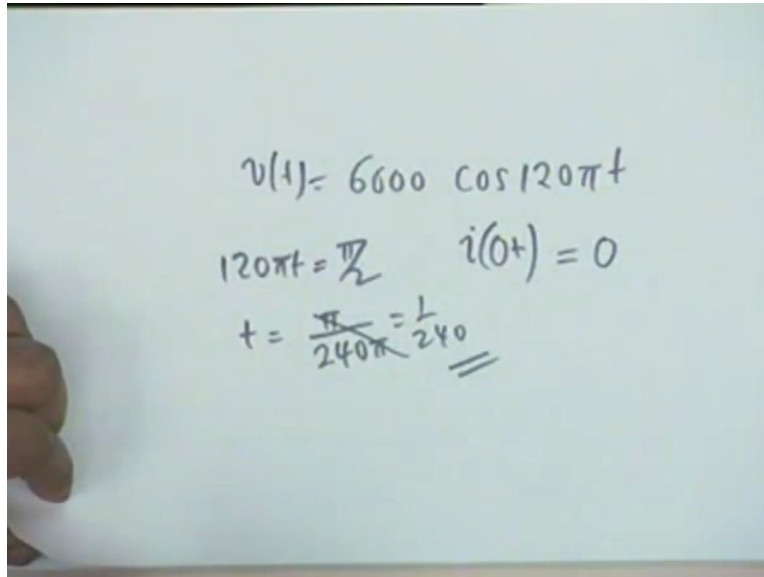 v(t) = 6600 cos 120πt
120πt = π/2 i(0+) = 0
t = π/240π = 1/240